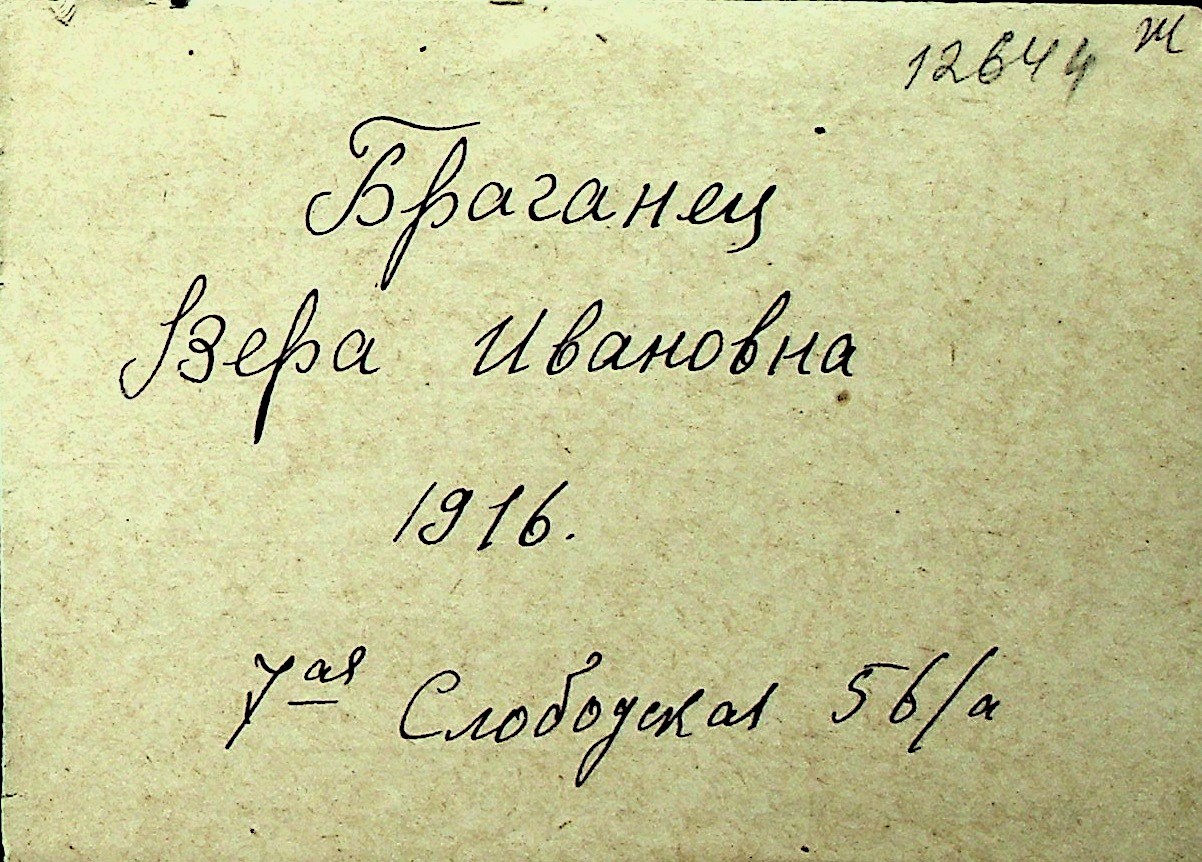 12644 Ж
Браганец
Вера Ивановна
1916.
7ая Слободская 56/а